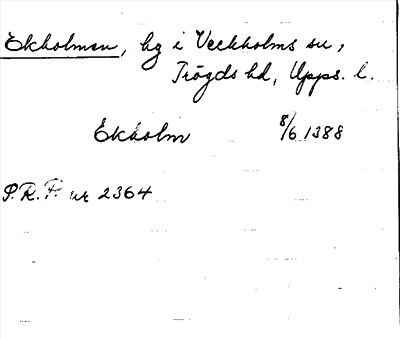 Ekholmen, hg i Veckholms sn,
Trögds hd, Upps. l.
Ekholm 8/6 1388
P.R.P. nr 2364